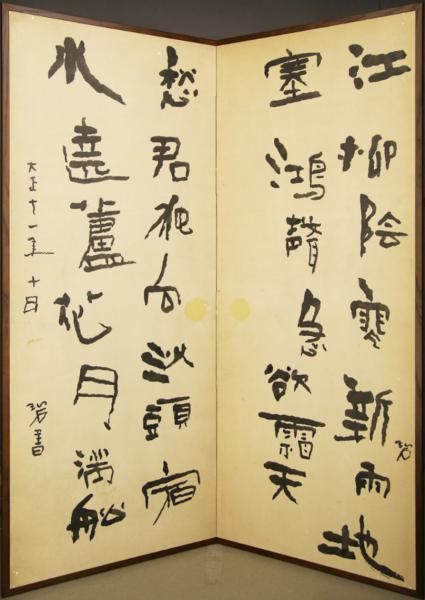 江柳陰寒新雨地
碧
塞鴻聲急欲霜天
愁君独向沙頭宿
水遶蘆花月滿舩
大正十一年十月
碧書